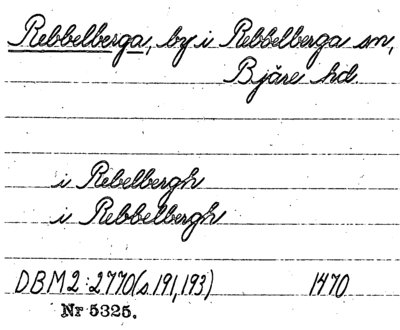 Rebbelberga, by i Rebbelberga sn,
Bjäre hd.
i Rebelbergh
i Rebbelbergh
DBM2:2770(s 191,193) 1470
Nr 5325.